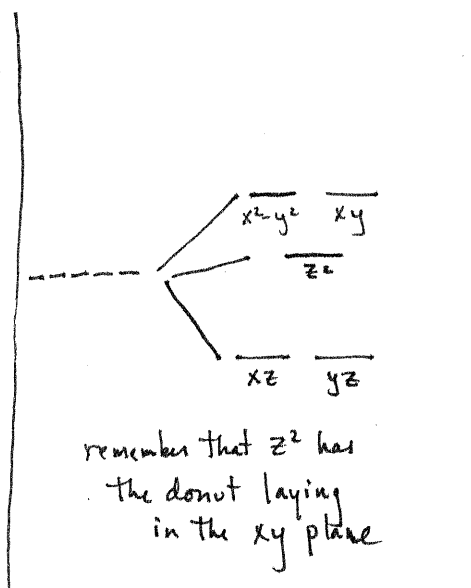 x²-y² xy
z²
xz yz
remember that z² has
the donut laying
in the xy plane